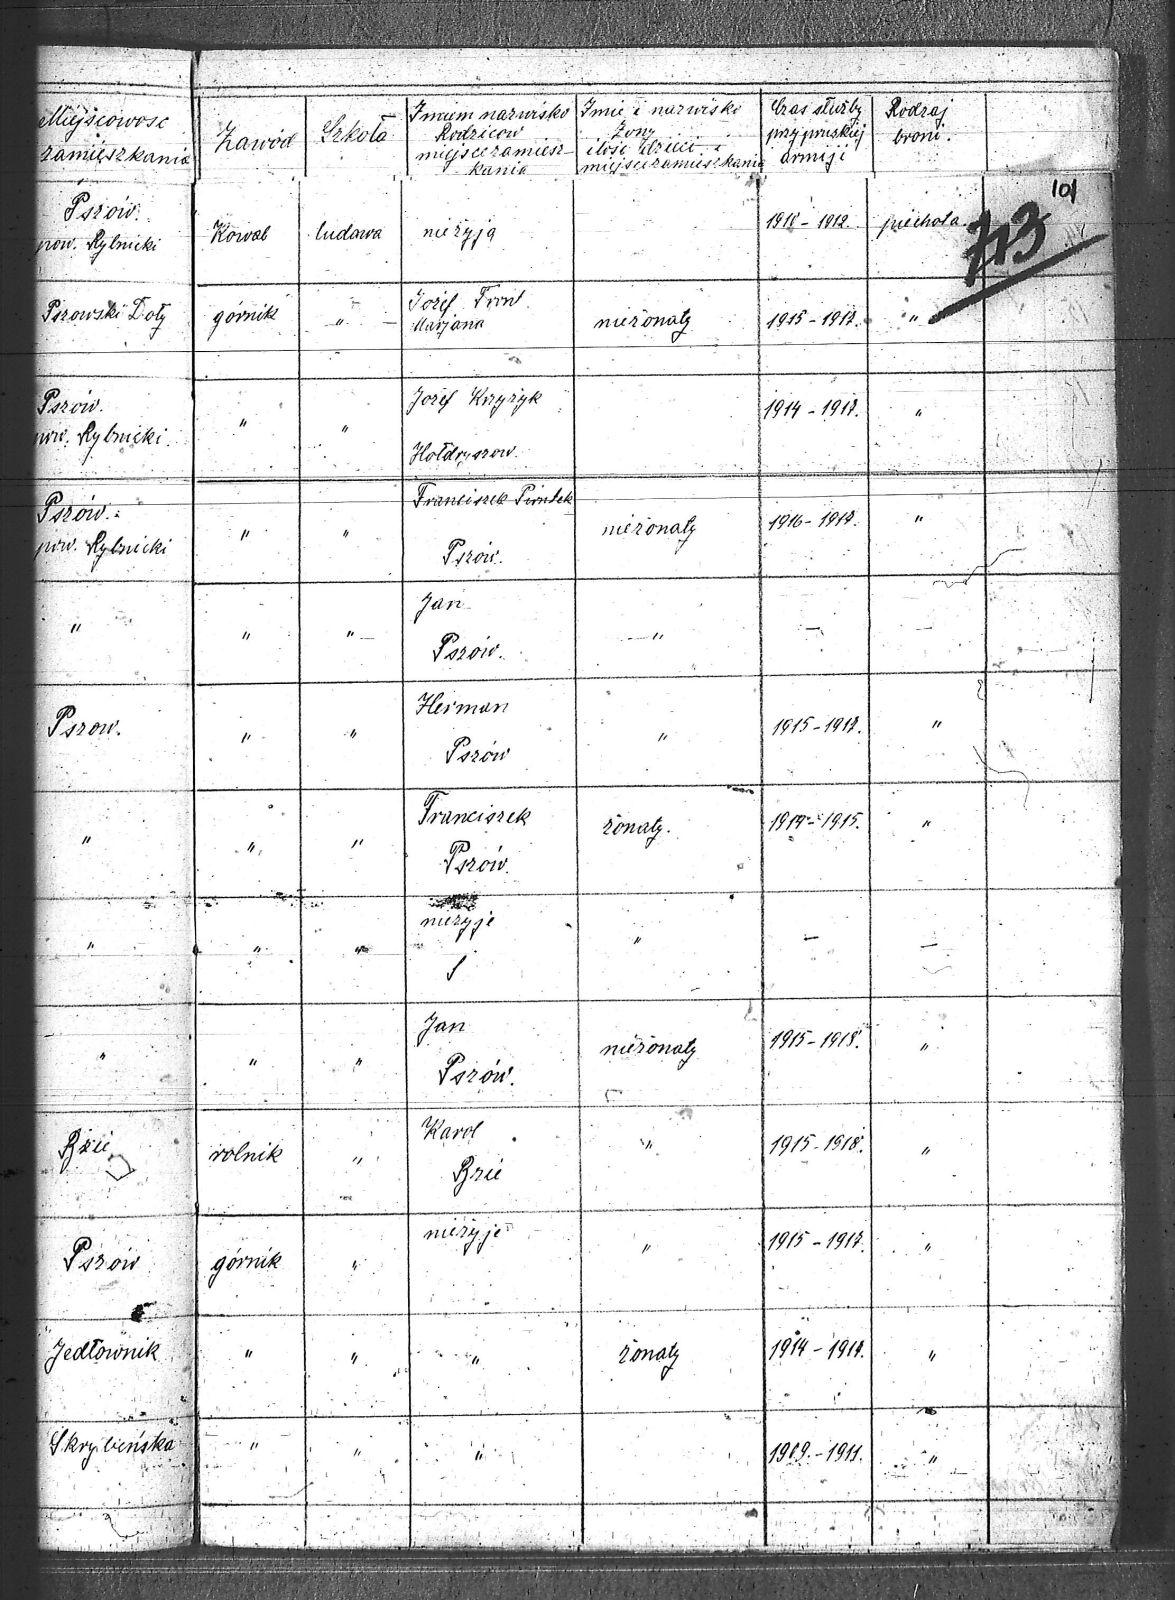 Miejscowość
zamieszkania
Zawód
Szkoła
Imiem nazwisko
Rodziców
miejscezamiesz-
kania
Imię i nazwisko
Żony
ilość dzieci i
miejscezamieszkania
Czas służby
przy pruskiej
armiji
Rodzaj
broni.
101
713
Pszów.
pow. Rybnicki
Kowal
ludowa
nieżyją
1910 - 1912.
piechota.
Pszowski Doły
górnik
"
Józef
Marjana
nieżonaty
1915 - 1917.
"
Pszów.
pow. Rybnicki.
"
"
Józef Krzyżyk
Hołdryszow.
1914 - 1917.
"
Pszów.
pow. Rybnicki
"
"
Franciszek Piontek
Pszów.
nieżonaty
1916 - 1917.
"
"
"
" —
Jan
Pszów.
— "
—
—
Pszow.
"
"
Herman
Pszów
"
1915 - 1917.
"
"
"
"
Franciszek
Pszów.
żonaty.
1914 - 1915.
"
"
"
"
nieżyje
"
—
—
"
"
"
Jan
Pszów.
nieżonaty
1915 - 1918.
"
Bzie
rolnik
"
Karol
Bzie
"
1915 - 1918.
"
Pszów
górnik
"
nieżyje
"
1915 - 1917.
"
Jedłownik
"
"
"
żonaty
1914 - 1917.
"
Skrybeńsko
"
"
"
1909. - 1911.
"